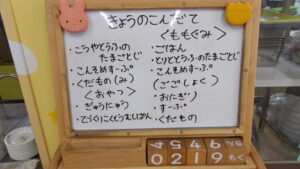 きょうのこんだて
<ももぐみ>
・こうやとうふの
たまごとじ
・こんそめすーぷ
・くだもの(み)
<おやつ>
・ぎゅうにゅう
・てづくりこくとうむしぱん
・ごはん
・とりととうふのたまごとじ
・こんそめすーぷ
(ごごしょく)
・おにぎり
・すーぷ
・くだもの
4 5 4 6
0 2 1 9 もく